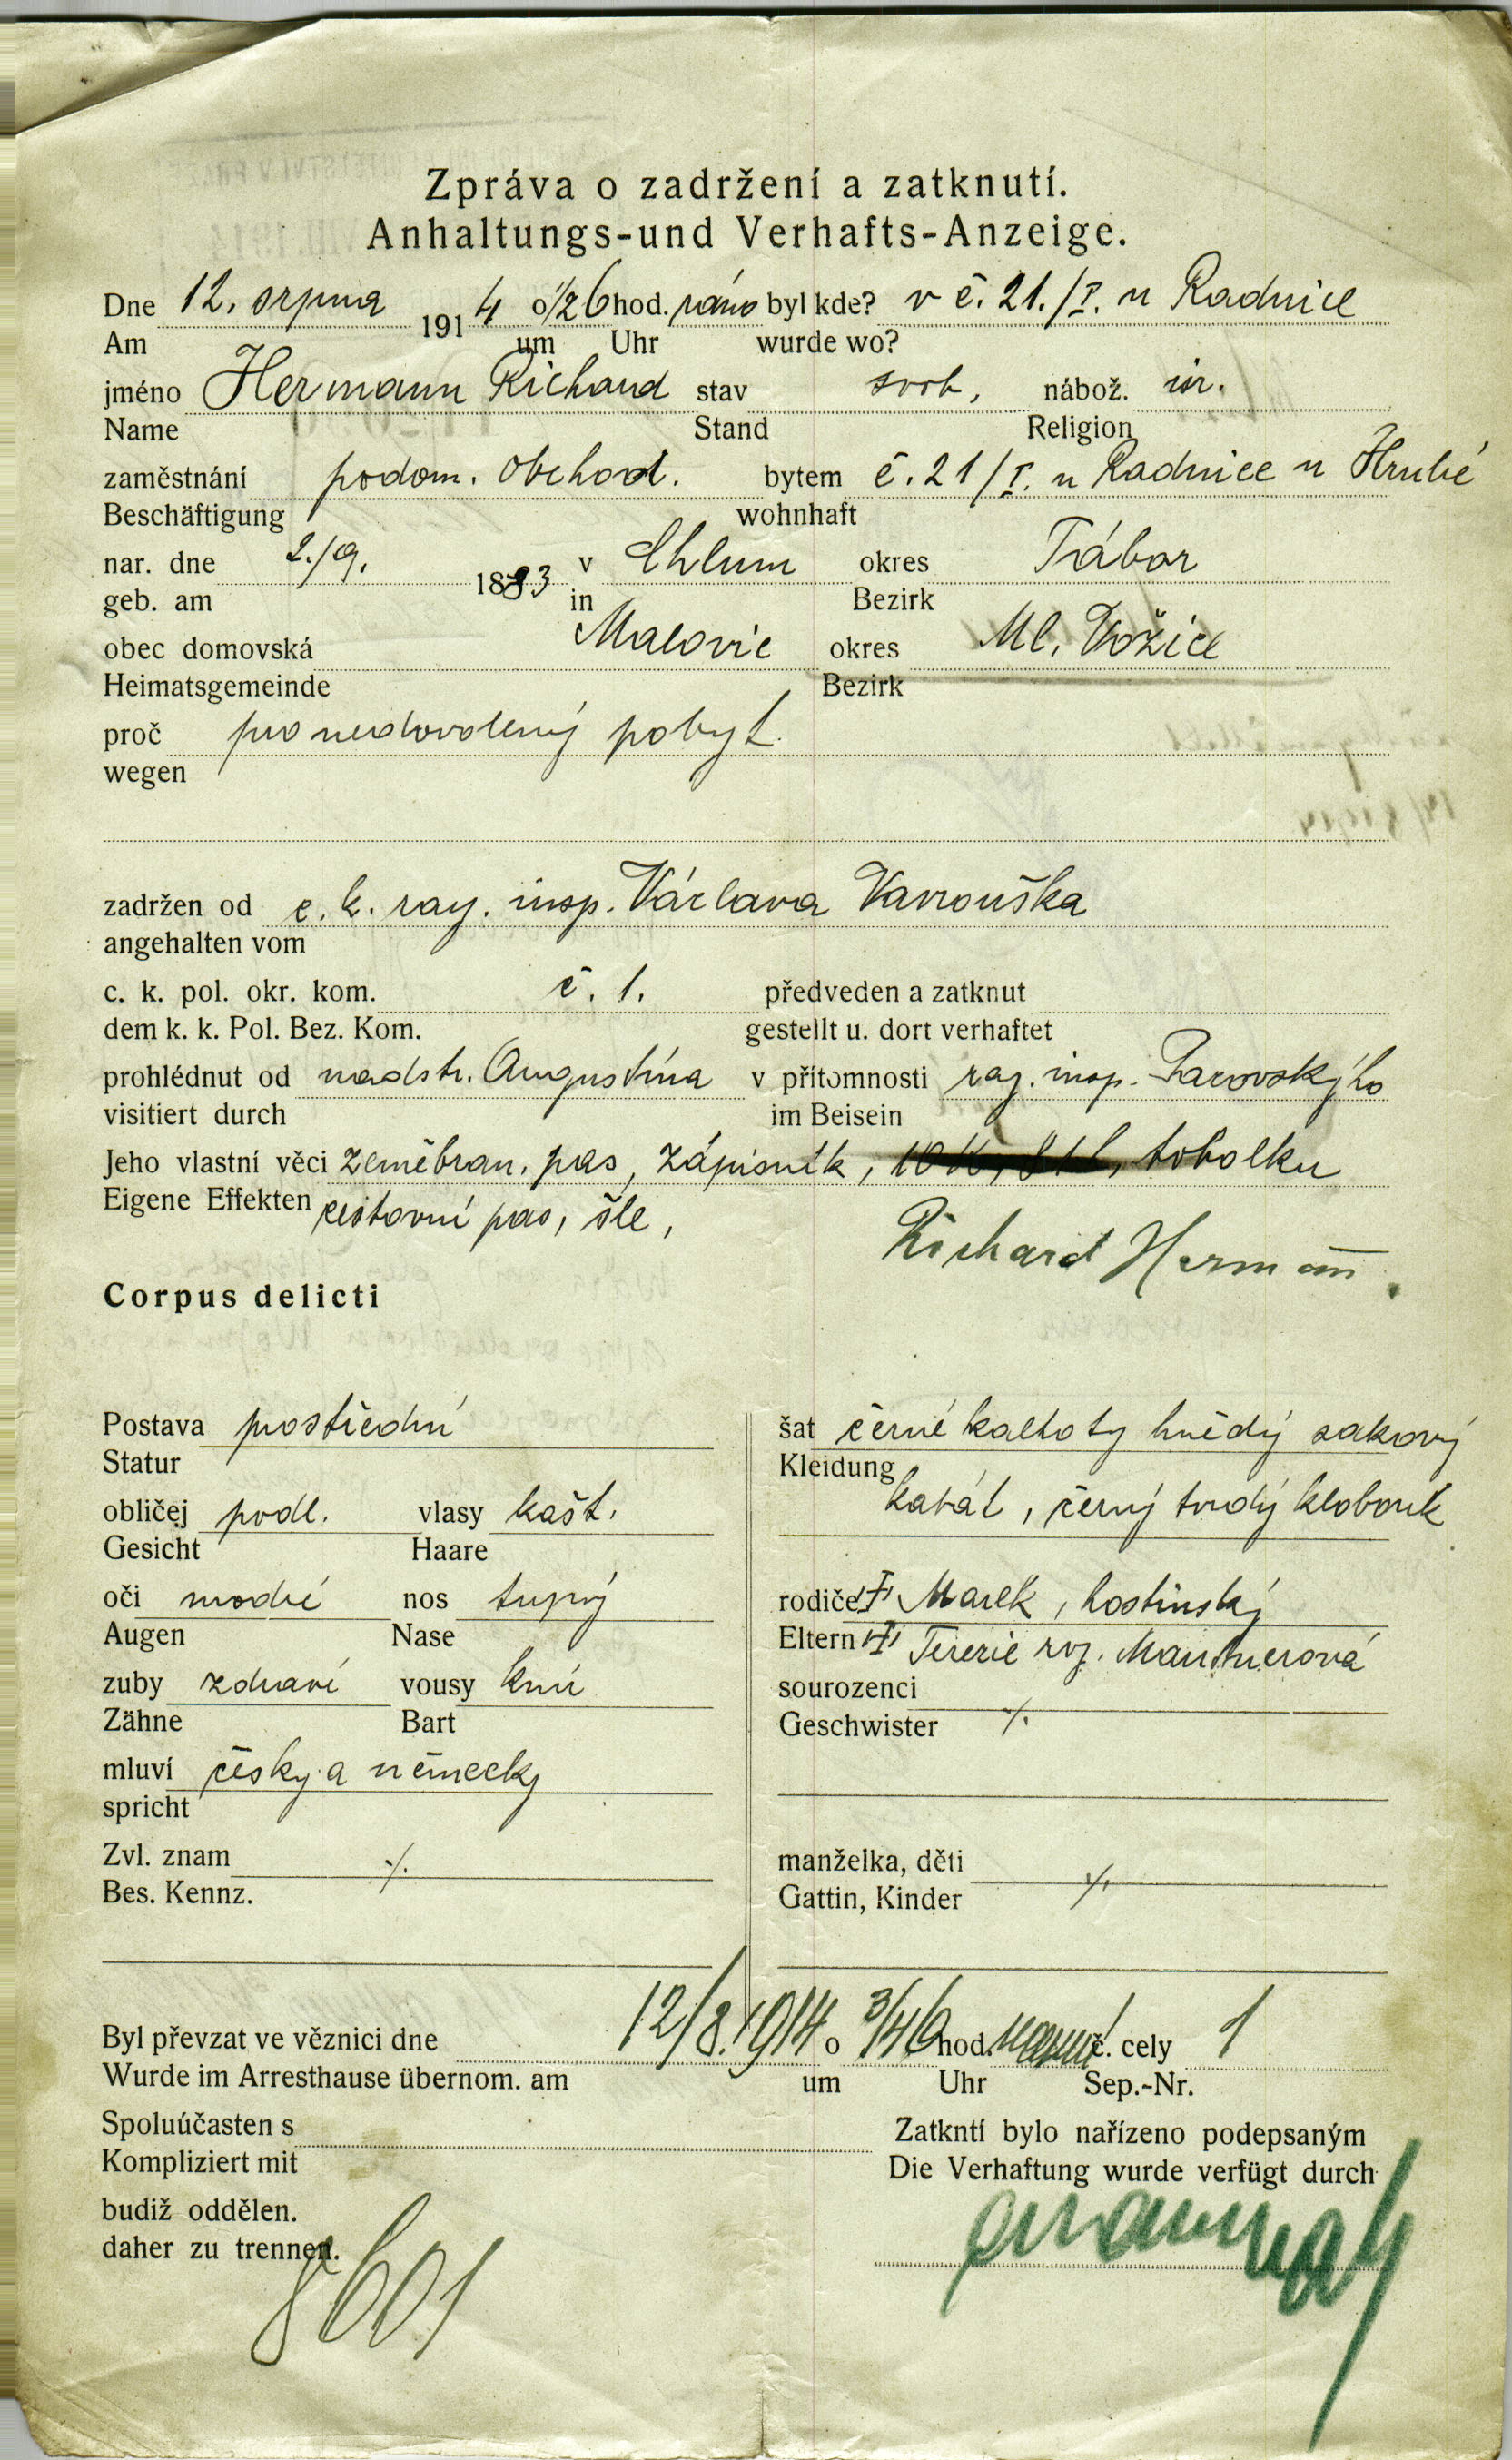 Zpráva o zadržení a zatknutí.
Anhaltungs-und Verhafts-Anzeige.
Dne 12. srpna 1914 o 1/2 6 hod. ráno byl kde? v č. 21./I. u Radnice
Am um Uhr wurde wo?
jméno Hermann Richard stav svob. nábož. isr.
Name Stand Religion
zaměstnání podom. obchod. bytem č. 21/I. u Radnice u Hrubé
Beschäftigung wohnhaft
nar. dne 2./9. 1893 v Chlum okres Tábor
geb. am in Bezirk
obec domovská Malovic okres Ml. Vožice
Heimatsgemeinde Bezirk
proč pro nedovolený pobyt.
wegen
zadržen od c. k. ray. insp. Václava Vavrouška
angehalten vom
c. k. pol. okr. kom. č. 1. předveden a zatknut
dem k. k. Pol. Bez. Kom. gestellt u. dort verhaftet
prohlédnut od nadstr. Augustina v přítomnosti ray. insp.
visitiert durch im Beisein
Jeho vlastní věci zeměbran. pas, zápisník, tobolku
Eigene Effekten cestovní pas, šle,
Richard Hermann.
Corpus delicti
Postava prostřední šat černé kalhoty hnědý sakový
Statur Kleidung
kabát, černý tvrdý klobouk
obličej podl. vlasy kašt.
Gesicht Haare
oči modré nos tupý rodiče Marek, hostinský
Augen Nase Eltern Terezie roz.
zuby zdravé vousy knír sourozenci
Zähne Bart Geschwister ·/.
mluví česky a německy
spricht
Zvl. znam ·/. manželka, děti ·/.
Bes. Kennz. Gattin, Kinder
Byl převzat ve věznici dne 12/8. 1914 o 3/4 6 hod. č. cely 1
Wurde im Arresthause übernom. am um Uhr Sep.-Nr.
Spoluúčasten s Zatkntí bylo nařízeno podepsaným
Kompliziert mit Die Verhaftung wurde verfügt durch
budiž oddělen.
daher zu trennen.
8601